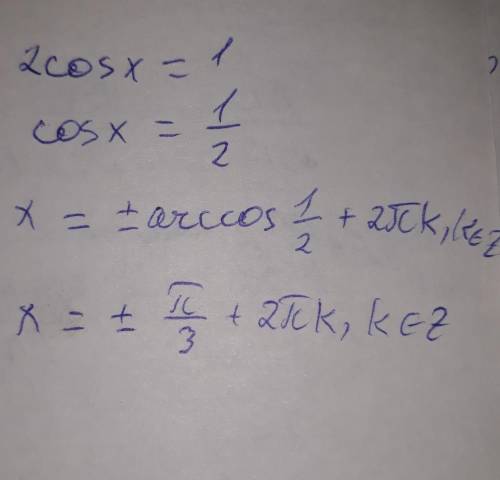 2cosx = 1
cosx = 1/2
x = ± arccos 1/2 + 2πk, k∈Z
x = ± π/3 + 2πk, k∈Z